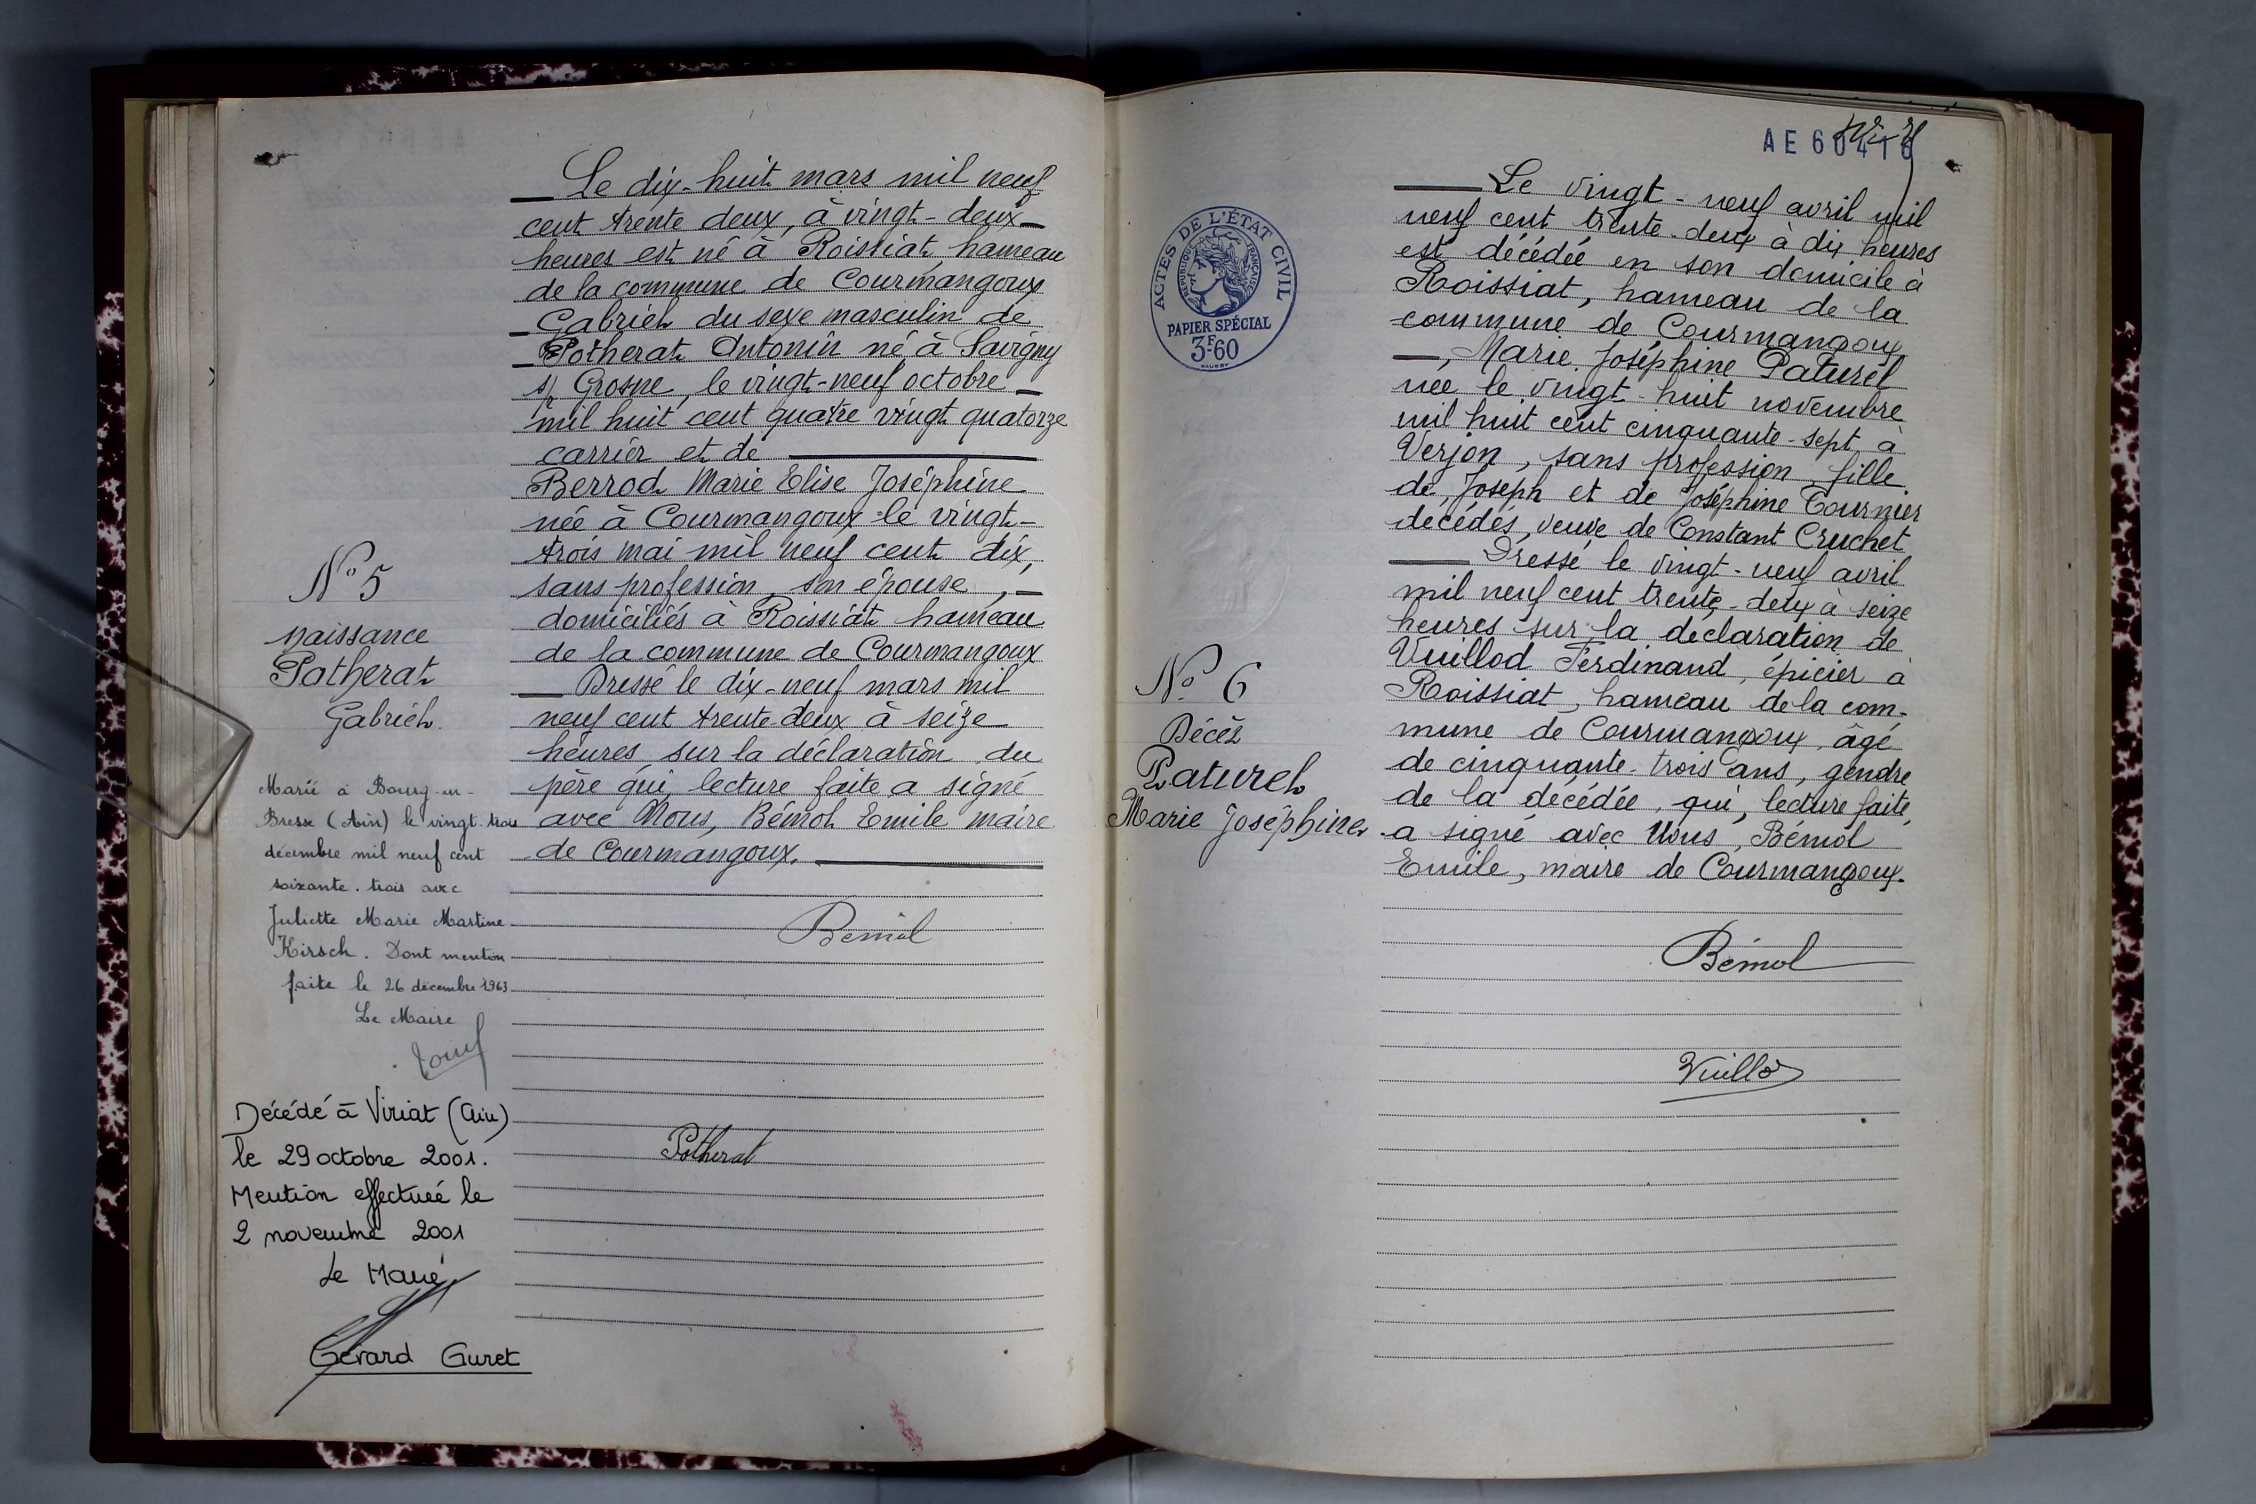 N° 5
Naissance
Potherat
Gabriel.
Marié à Bourg-en-
Bresse (Ain) le vingt-trois
décembre mil neuf cent
soixante-trois avec
Juliette Marie Martine
Kirsch. Dont mention
faite le 26 décembre 1963
Le Maire
Décédé à Viriat (Ain)
le 29 octobre 2001.
Mention effectuée le
2 novembre 2001
Le Maire
Gérard Guret
Le dix-huit mars mil neuf
cent trente deux, à vingt-deux
heures est né à Roissiat, hameau
de la commune de Courmangoux
Gabriel du sexe masculin de
Potherat Antonin né à Savigny
s/ Grosne, le vingt-neuf octobre
mil huit cent quatre vingt quatorze
carrier et de
Berrod Marie Elise Joséphine
née à Courmangoux le vingt-
trois mai mil neuf cent dix,
sans profession, son épouse,
domiciliés à Roissiat hameau
de la commune de Courmangoux
Dressé le dix-neuf mars mil
neuf cent trente-deux à seize
heures sur la déclaration du
père qui, lecture faite a signé
avec Nous, Bémol Emile maire
de Courmangoux.
Bémol
Potherat
AE 60416
ACTES DE L'ÉTAT CIVIL
RÉPUBLIQUE FRANÇAISE
PAPIER SPÉCIAL
3F60
N° 6
Décès
Paturel
Marie Joséphine
Le vingt-neuf avril mil
neuf cent trente-deux à dix heures
est décédée en son domicile à
Roissiat, hameau de la
commune de Courmangoux
, Marie Joséphine Paturel
née le vingt-huit novembre
mil huit cent cinquante-sept à
Verjon, sans profession fille
de Joseph et de Joséphine Tournier
décédés, veuve de Constant Cruchet
Dressé le vingt-neuf avril
mil neuf cent trente-deux à seize
heures sur la déclaration de
Vuillod Ferdinand, épicier à
Roissiat, hameau de la com-
mune de Courmangoux, âgé
de cinquante-trois ans, gendre
de la décédée, qui, lecture faite,
a signé avec Nous, Bémol
Emile, maire de Courmangoux.
Bémol
Vuillod